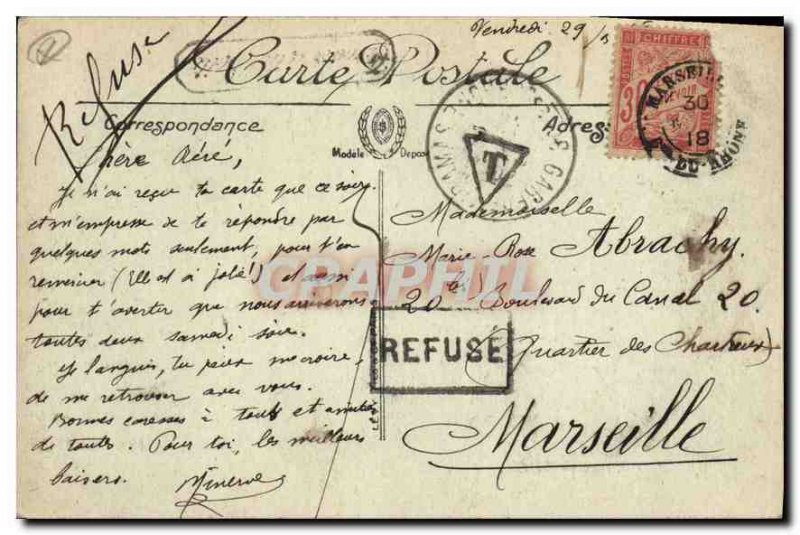 Vendredi 29
Refusé
Carte Postale
Correspondance
Modèle Déposé
Adresse
CHIFFRE
MARSEILLE
30
18
DU-RHONE
T
Chère
Je n'ai reçu ta carte que ce soir
et m'empresse de te répondre par
quelques mots seulement, pour t'en
remercier (Elle est si jolie!) et aussi
pour t'avertir que nous arriverons
toutes deux samedi soir.
Je languis, tu peux me croire,
de me retrouver avec vous.
Bonnes caresses à tous et amitiés
de toutes. Pour toi, les meilleurs
baisers. Minerve
Mademoiselle
Marie-Rose Abrachy.
20 Boulevard du Canal 20
(Quartier des Chartreux)
Marseille
REFUSE
CPARAMA.FR